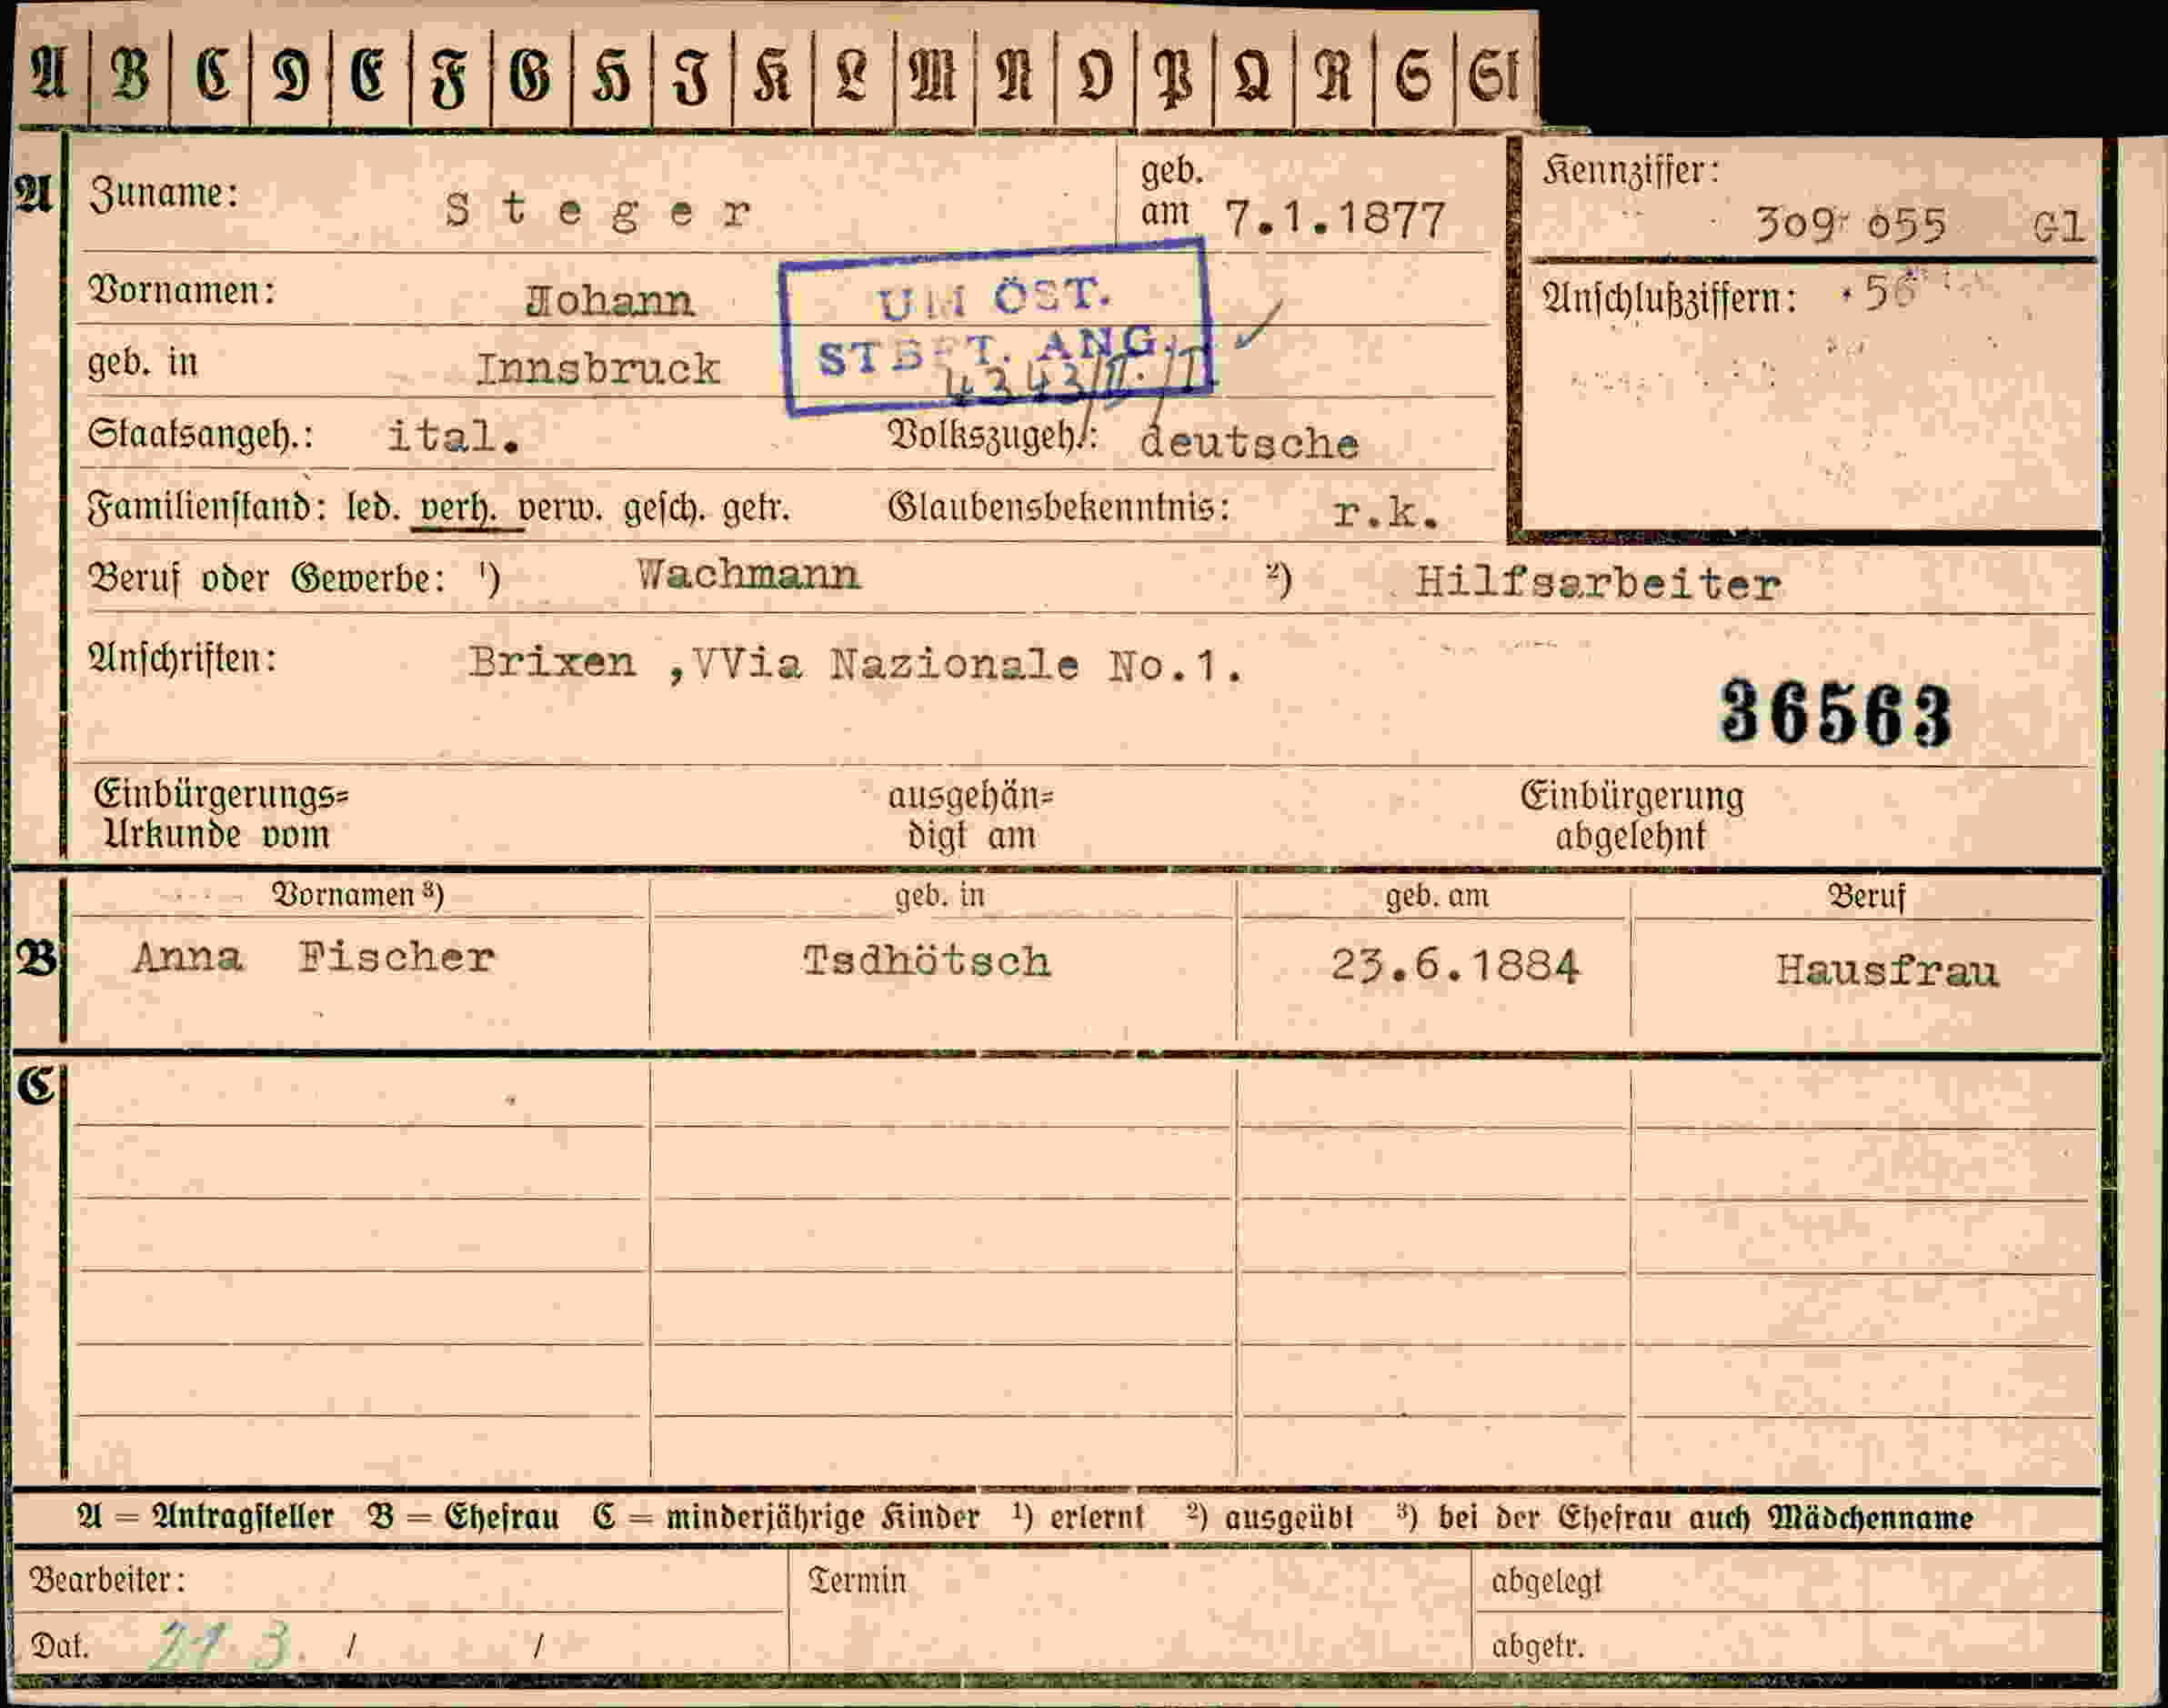 A B C D E F G H I K L M N O P Q R S St
A Zuname: Steger geb. am 7.1.1877
Kennziffer: 309 055 Gl
Vornamen: Johann
UM ÖST.
Anschlußziffern: 56
geb. in Innsbruck
ANG.
Staatsangeh.: ital. Volkszugeh.: deutsche
Familienstand: led. verh. verw. gesch. getr. Glaubensbekenntnis: r.k.
Beruf oder Gewerbe: ¹) Wachmann ²) Hilfsarbeiter
Anschriften: Brixen ,VVia Nazionale No.1.
36563
Einbürgerungs= ausgehän= Einbürgerung
Urkunde vom digt am abgelehnt
Vornamen ³) geb. in geb. am Beruf
B Anna Fischer Tsdhötsch 23.6.1884 Hausfrau
C
A = Antragsteller B = Ehefrau C = minderjährige Kinder ¹) erlernt ²) ausgeübt ³) bei der Ehefrau auch Mädchenname
Bearbeiter: Termin abgelegt
Dat. 21 3. / / abgetr.